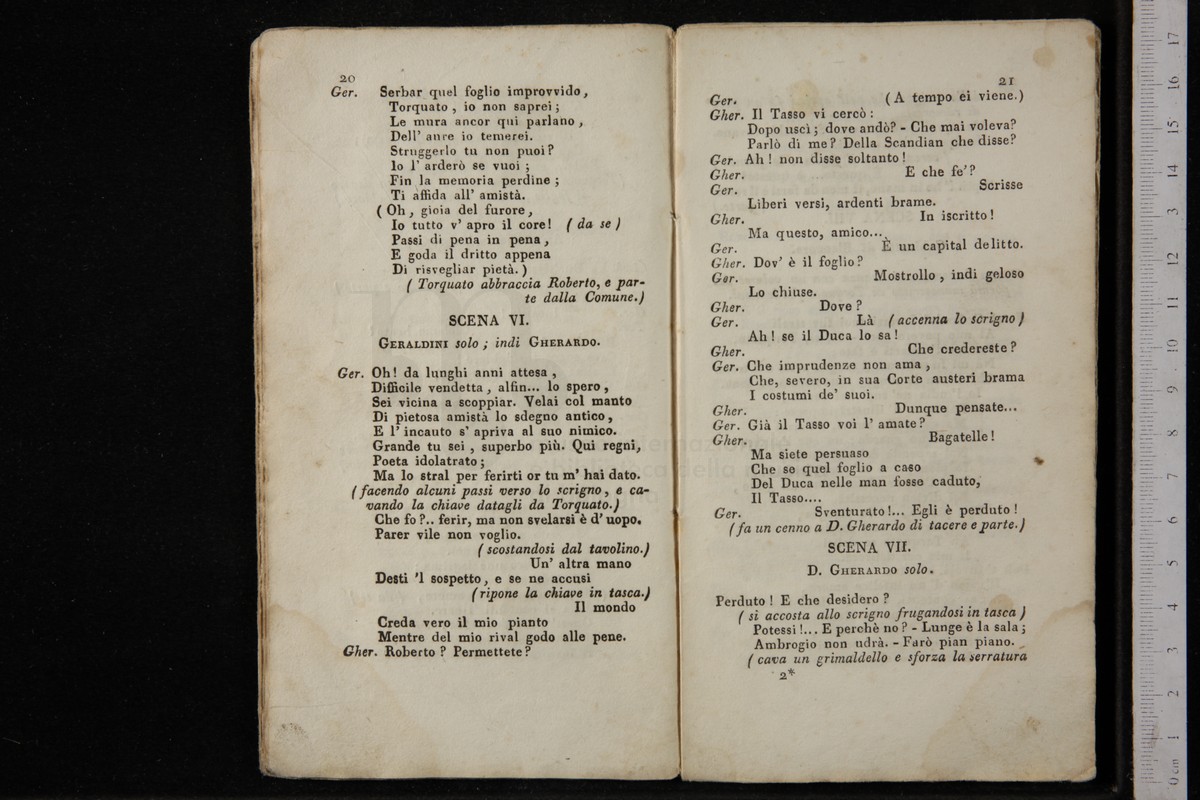 20
Ger. Serbar quel foglio improvvido,
Torquato, io non saprei;
Le mura ancor qui parlano,
Dell' aure io temerei.
Struggerlo tu non puoi?
Io l' arderò se vuoi;
Fin la memoria perdine;
Ti affida all' amistà.
(Oh, gioia del furore,
Io tutto v' apro il core! (da se)
Passi di pena in pena,
E goda il dritto appena
Di risvegliar pietà.)
(Torquato abbraccia Roberto, e par-
te dalla Comune.)
SCENA VI.
GERALDINI solo; indi GHERARDO.
Ger. Oh! da lunghi anni attesa,
Difficile vendetta, alfin... lo spero,
Sei vicina a scoppiar. Velai col manto
Di pietosa amistà lo sdegno antico,
E l' incauto s' apriva al suo nimico.
Grande tu sei, superbo più. Qui regni,
Poeta idolatrato;
Ma lo stral per ferirti or tu m' hai dato.
(facendo alcuni passi verso lo scrigno, e ca-
vando la chiave datagli da Torquato.)
Che fo?.. ferir, ma non svelarsi è d' uopo.
Parer vile non voglio.
(scostandosi dal tavolino.)
Un' altra mano
Desti 'l sospetto, e se ne accusi
(ripone la chiave in tasca.)
Il mondo
Creda vero il mio pianto
Mentre del mio rival godo alle pene.
Gher. Roberto? Permettete?
21
Ger. (A tempo ei viene.)
Gher. Il Tasso vi cercò:
Dopo uscì; dove andò? - Che mai voleva?
Parlò di me? Della Scandian che disse?
Ger. Ah! non disse soltanto!
Gher. E che fe'?
Ger. Scrisse
Liberi versi, ardenti brame.
Gher. In iscritto!
Ma questo, amico...
Ger. È un capital delitto.
Gher. Dov' è il foglio?
Ger. Mostrollo, indi geloso
Lo chiuse.
Gher. Dove?
Ger. Là (accenna lo scrigno)
Ah! se il Duca lo sa!
Gher. Che credereste?
Ger. Che imprudenze non ama,
Che, severo, in sua Corte austeri brama
I costumi de' suoi.
Gher. Dunque pensate...
Ger. Già il Tasso voi l' amate?
Gher. Bagatelle!
Ma siete persuaso
Che se quel foglio a caso
Del Duca nelle man fosse caduto,
Il Tasso....
Ger. Sventurato!... Egli è perduto!
(fa un cenno a D. Gherardo di tacere e parte.)
SCENA VII.
D. GHERARDO solo.
Perduto! E che desidero?
(si accosta allo scrigno frugandosi in tasca)
Potessi!... E perchè no? - Lunge è la sala;
Ambrogio non udrà. - Farò pian piano.
(cava un grimaldello e sforza la serratura
2*